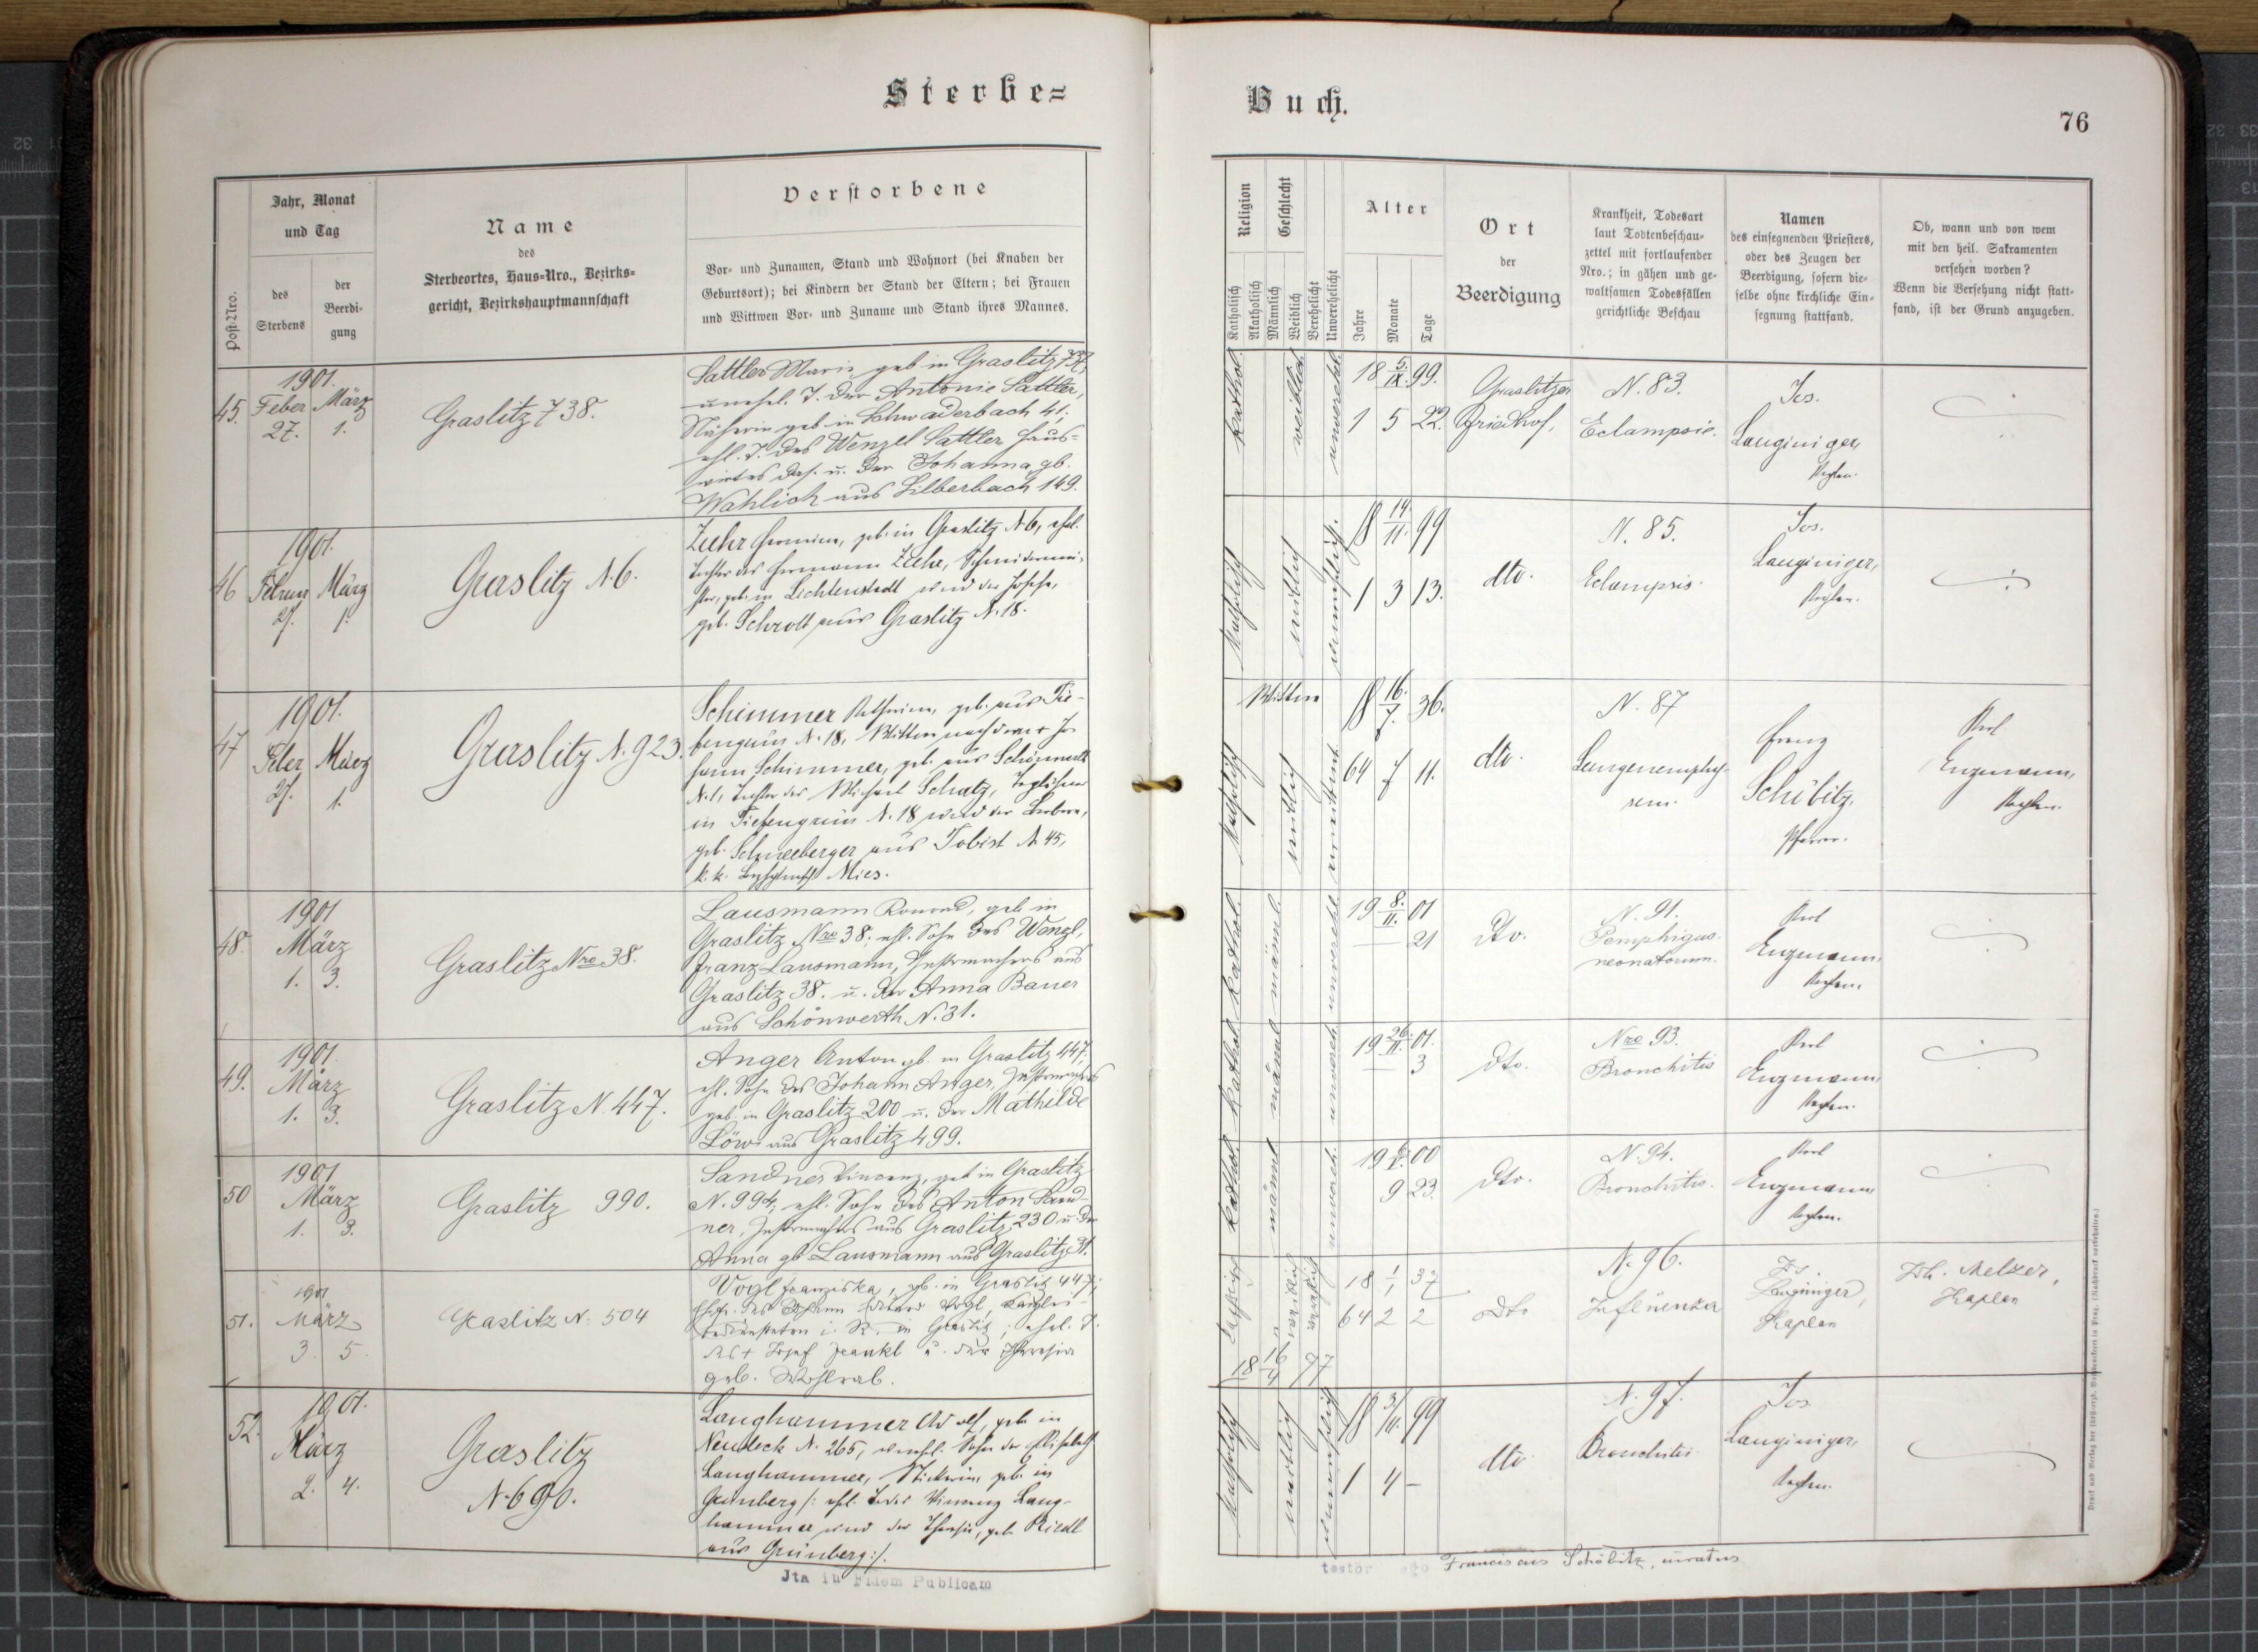 Sterbe=
Buch.
76
Post-Nro.
Jahr, Monat
und Tag
des
Sterbens
der
Beerdi-
gung
Name
des
Sterbeortes, Haus-Nro., Bezirks-
gericht, Bezirkshauptmannschaft
Verstorbene
Vor- und Zunamen, Stand und Wohnort (bei Knaben der
Geburtsort); bei Kindern der Stand der Eltern; bei Frauen
und Wittwen Vor- und Zuname und Stand ihres Mannes.
Religion
Katholisch
Akatholisch
Geschlecht
Männlich
Weiblich
Verehelicht
Unverehelicht
Alter
Jahre
Monate
Tage
Ort
der
Beerdigung
Krankheit, Todesart
laut Todtenbeschau-
zettel mit fortlaufender
Nro.; in gähen und ge-
waltsamen Todesfällen
gerichtliche Beschau
Namen
des einsegnenden Priesters,
oder des Zeugen der
Beerdigung, sofern die-
selbe ohne kirchliche Ein-
segnung stattfand.
Ob, wann und von wem
mit den heil. Sakramenten
versehen worden?
Wenn die Versehung nicht statt-
fand, ist der Grund anzugeben.
45.
1901.
Feber März
27. 1.
Graslitz 738.
Sattler Marie geb in Graslitz
unehl. T. der Antonie Sattler,
Näherin geb in Schwaderbach 41.
ehl. T. des Wenzel Sattler Haus-
wirtes das. u. der Johanna gb.
Wohlich aus Silberbach 149.
kathol.
weiblich
unverehl.
18 5/IX. 99.
1 5 22.
Graslitzer
Friedhof.
N. 83.
Eclampsie.
Jos.
Langiniger,
Kaplan.
46
1901.
Februar März
27. 1.
Graslitz N. 6.
Zuhr Hermine, geb. in Graslitz N 6, ehel.
Tochter des Hermann Zuhr, Schmiedemei-
ster, geb. in Lichtenstadt und der Josefa,
geb. Schrott aus Graslitz N. 18.
Katholisch
weiblich
unverehelicht
18 14./11. 99
1 3 13.
dto.
N. 85.
Eclampsis.
Jos.
Langiniger,
Kaplan.
47
1901.
Feber März
27. 1.
Graslitz N. 923.
Schimmer Katharina, geb. aus Tie-
fengrün N. 18, Wittwe nach dem Jo-
hann Schimmer, geb. aus Schönwerth
N. 1, Tochter des Michael Schatz, Taglöhner
in Tiefengrün N. 18 und der Barbara,
geb. Schneeberger aus Tobist N 45,
k. k. Mies.
Wittwe
Katholisch
weiblich
18 16./7. 36.
64 7 11.
dto.
N. 87
Lungenemphy-
sem.
Franz
Schöbitz,
Pfarrer.
Karl
Enzmann,
Kaplan.
48.
1901
März
1. 3.
Graslitz Nro 38.
Lausmann Konrad, geb in
Graslitz Nro 38; ehl. Sohn des Wenzl,
Franz Lausmann, Instrmachers aus
Graslitz 38. u. der Anna Bauer
aus Schönwerth N. 31.
kathol.
männl.
unverehl.
19 8./II. 01
— 21
Dto.
N. 91.
Pemphigus
neonatorum.
Karl
Enzmann,
Kaplan.
49.
1901.
März
1. 3.
Graslitz N. 447.
Anger Anton gb. in Graslitz 447;
ehl. Sohn des Johann Anger,
geb. in Graslitz 200 u. der Mathilde
Löw aus Graslitz 499.
kathol.
männl.
unvereh.
19 26./II. 01.
— 3
Dto.
Nro 93.
Bronchitis
Karl
Enzmann,
Kaplan.
50
1901
März
1. 3.
Graslitz 990.
Sandner Vincenz, geb in Graslitz
N. 994; ehl. Sohn des Anton Sand-
ner, Instrmachers aus Graslitz 230 u. der
Anna gb Lausmann aus Graslitz 31.
kathol.
männl.
unvereh.
19 00
9 23.
Dto.
N. 94.
Bronchitis.
Karl
Enzmann
Kaplan.
51.
1901
März
3. 5
Graslitz N. 504
Vogl Franziska, gb. in Graslitz 447;
Ehefr. des Johann Vogl,
i. R. in Graslitz; ehel. T.
des + Josef u. der Theresia
geb. Wohlrab.
weiblich
verehelicht
18 1/1 37
64 2 2
18 16/4 97
Dto
N. 96.
Influenza
Jos.
Langiniger,
Kaplan
Joh. Melzer,
Kaplan
52.
1901.
März
2. 4.
Graslitz
N. 690.
Langhammer Adolf, geb. in
Neudeck N. 265, unehl. Sohn der Elisabeth
Langhammer, Stickerin, geb. in
Grünberg /: ehl. T. des Vinzenz Lang-
hammer und der Theresia, geb. Riedl
aus Grünberg :/.
Katholisch
unverehelicht
18 99
1 4 —
dto
N. 97.
Bronchitis
Jos
Langiniger,
Kaplan.
Jta in Fidem Publicam
testor ego Franciscus Schöbitz, curatus